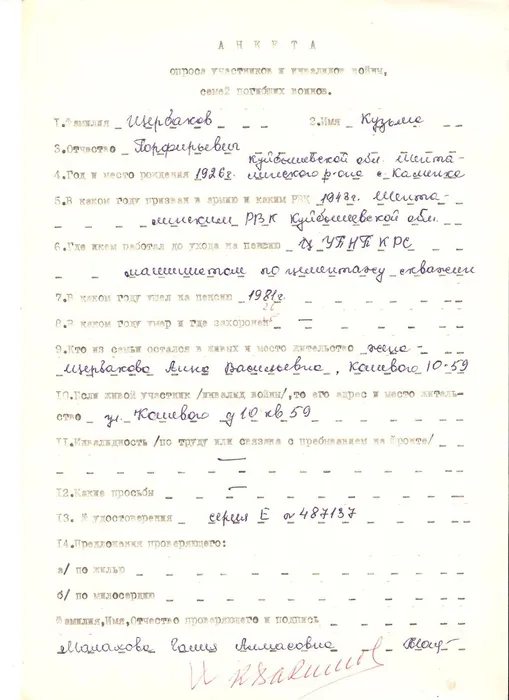 АНКЕТА
опроса участников и инвалидов войны,
семей погибших воинов.
1.Фамилия Щербаков 2.Имя Кузьма
3.Отчество Порфирьевич
Куйбышевской обл. Шента-
4.Год и место рождения 1926г. линского р-она с Каменка
5.В каком году призван в армию и каким РВК 1943г. Шента-
линским РВК Куйбышевской обл.
6.Где и кем работал до ухода на пенсию ЦУПНПКРС
машинистом по цементажу скважин
7.В каком году ушел на пенсию 1981г.
8.В каком году умер и где захоронен —
9.Кто из семьи остался в живых и место жительство жена
Щербакова Анна Васильевна, Кошевого 10-59
10.Если живой участник /инвалид войны/,то его адрес и место житель-
ство ул. Кошевого д 10 кв 59
11.Инвалидность /по труду или связана с пребыванием на фронте/
—
12.Какие просьбы —
13. № удостоверения серия Е № 487137
14.Предложения проверяющего:
а/ по жилью
б/ по милосердию
Фамилия,Имя,Отчество проверяющего и подпись
Малахова Галия Алмасовна